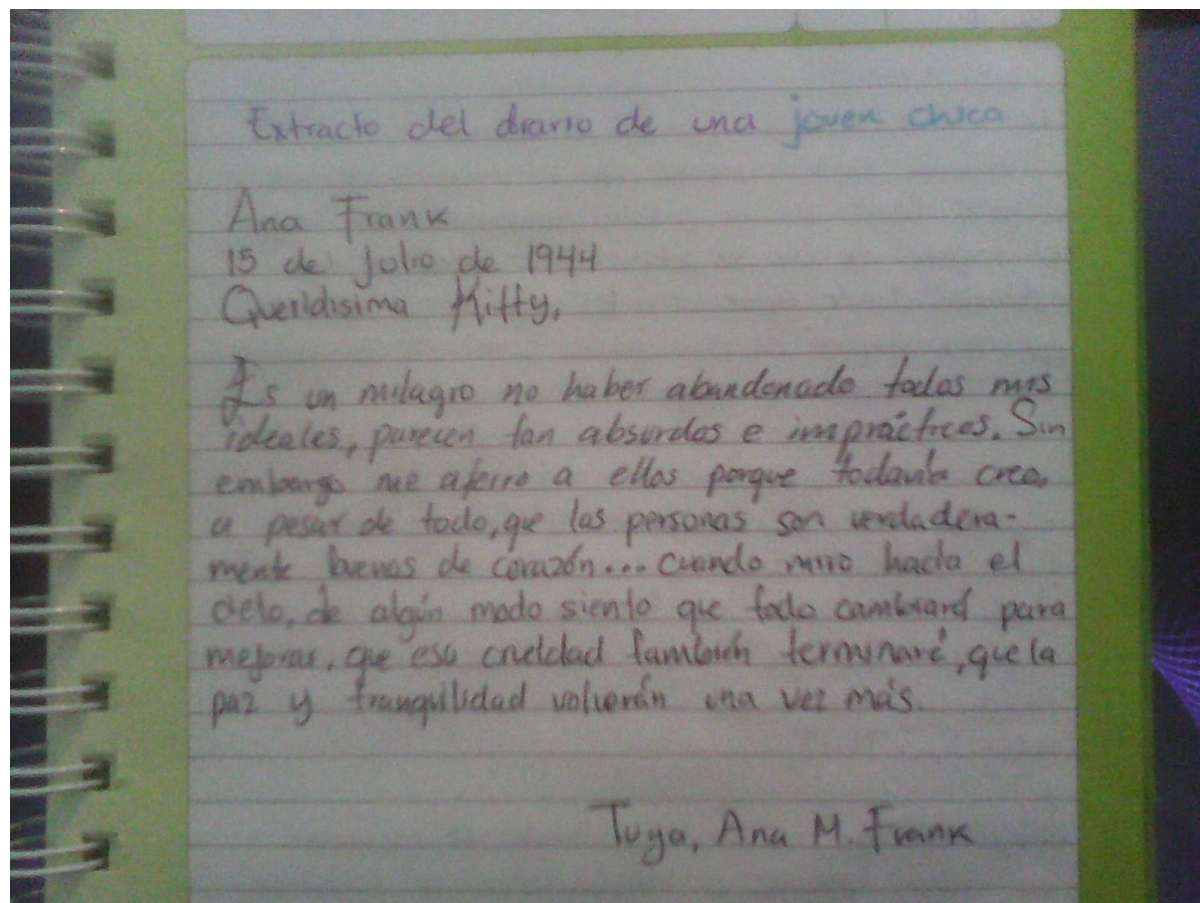 Extracto del diario de una joven chica
Ana Frank
15 de Julio de 1944
Queridisima Kitty,
Es un milagro no haber abandonado todos mis
ideales, parecen tan absurdos e imprácticos. Sin
embargo me aferro a ellos porque todavía creo,
a pesar de todo, que las personas son verdadera-
mente buenas de corazón... cuando miro hacia el
cielo, de algún modo siento que todo cambiará para
mejorar, que esa crueldad también terminará, que la
paz y tranquilidad volverán una vez más.
Tuya, Ana M. Frank